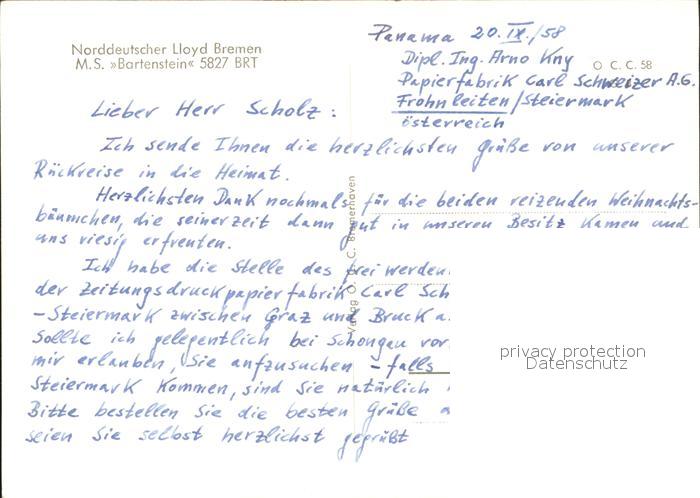 Norddeutscher Lloyd Bremen
M.S. »Bartenstein« 5827 BRT
Panama 20. IX./58
Dipl. Ing. Arno Kny
O C. C. 58
Papierfabrik Carl Schweizer A.G.
Frohnleiten/Steiermark
Österreich
Lieber Herr Scholz:
Ich sende Ihnen die herzlichsten Grüße von unserer
Rückreise in die Heimat.
Herzlichsten Dank nochmals für die beiden reizenden Weihnachts-
bäumchen, die seinerzeit dann gut in unseren Besitz kamen und
uns riesig erfreuten.
Ich habe die Stelle des frei werden
der Zeitungsdruckpapierfabrik Carl Sch
-Steiermark zwischen Graz und Bruck a.
Sollte ich gelegentlich bei Schongau vor
mir erlauben, Sie aufzusuchen - falls
Steiermark kommen, sind Sie natürlich
Bitte bestellen Sie die besten Grüße a
seien Sie selbst herzlichst gegrüßt
Verlag O. C. C. Bremerhaven
privacy protection
Datenschutz